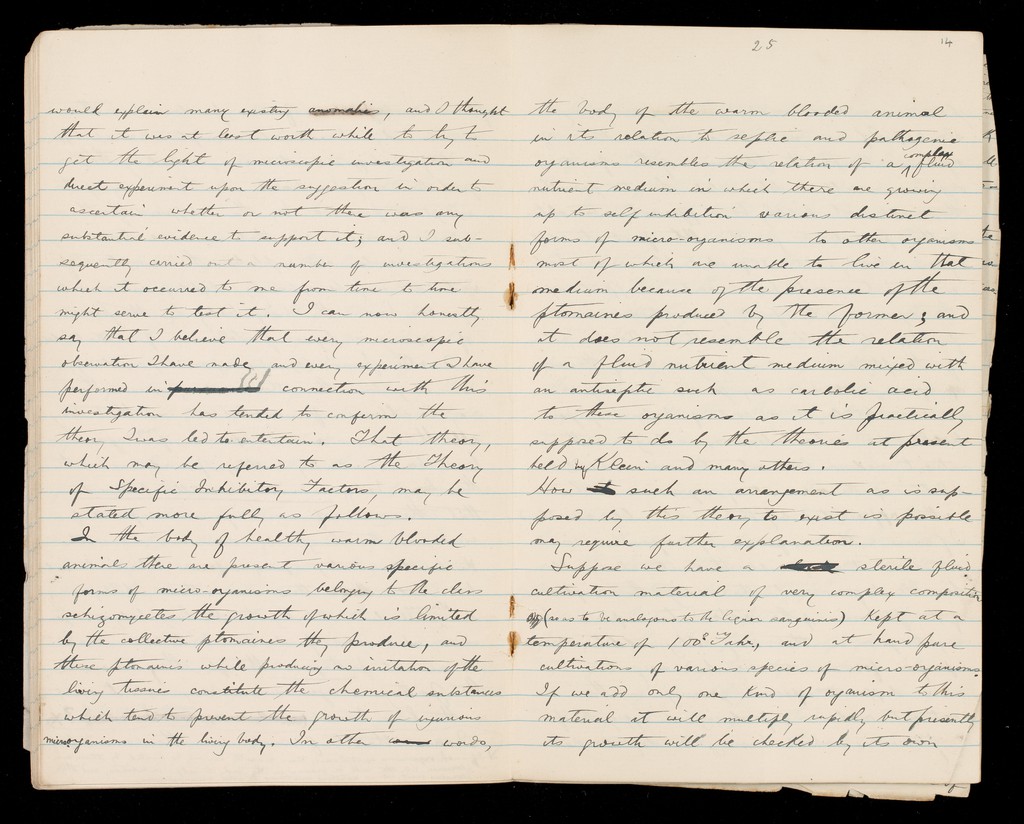 would explain many existing anomalies, and I thought
that it was at least worth while to try to
get the light of microscopic investigation and
direct experiment upon the suggestion in order to
ascertain whether or not there was any
substantial evidence to support it; and I sub-
sequently carried out a number of investigations
which it occurred to me from time to time
might serve to test it. I can now honestly
say that I believe that every microscopic
observation I have made, and every experiment I have
performed in connection with this
investigation has tended to confirm the
theory I was led to entertain. That theory,
which may be referred to as the Theory
of Specific Inhibitory Factors, may be
stated more fully as follows.
In the body of healthy warm blooded
animals there are present various specific
forms of micro-organisms belonging to the class
schizomycetes the growth of which is limited
by the collective ptomaines they produce, and
these ptomaines while producing no irritation of the
living tissues constitute the chemical substances
which tend to prevent the growth of injurious
microorganisms in the living body. In other words,
25
14
the body of the warm blooded animal
in its relation to septic and pathogenic
organisms resembles the relation of a complex fluid
nutrient medium in which there are growing
up to self inhibition various distinct
forms of micro-organisms to other organisms
most of which are unable to live in that
medium because of the presence of the
ptomaines produced by the former; and
it does not resemble the relation
of a fluid nutrient medium mixed with
an antiseptic such as carbolic acid
to these organisms as it is practically
supposed to do by the theories at present
held by Klein and many others.
How such an arrangement as is sup-
posed by this theory to exist is possible
may require further explanation.
Suppose we have a sterile fluid
cultivation material of very complex composition
(so as to be analogous to the liquor sanguinis) Kept at a
temperature of 100° Fahr., and at hand pure
cultivations of various species of micro-organisms.
If we add only one kind of organism to this
material it will multiply rapidly but presently
its growth will be checked by its own